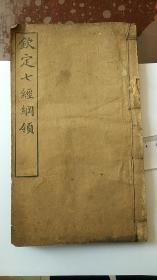 欽定七經綱領